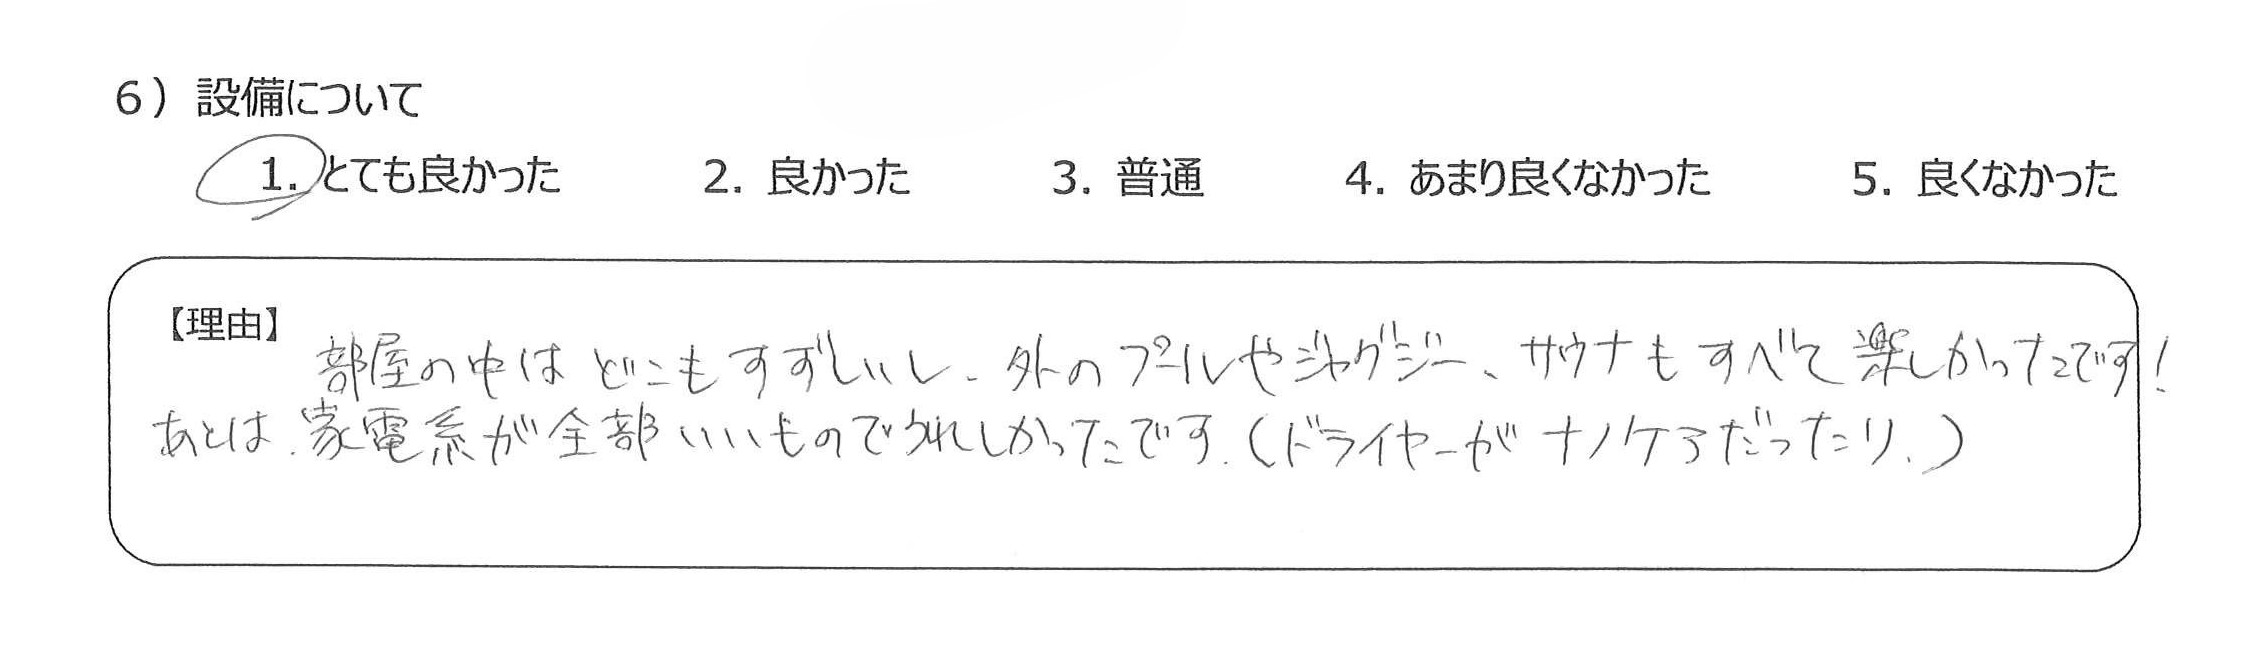 6）設備について
1. とても良かった 2. 良かった 3. 普通 4. あまり良くなかった 5. 良くなかった
【理由】
部屋の中はどこもすずしいし、外のプールやジャグジー、サウナもすべて楽しかったです！
あとは、家電系が全部いいものでうれしかったです。（ドライヤーがナノケアだったり、）